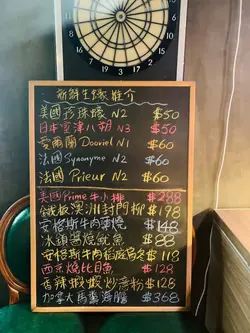 新鮮生蠔推介
美國珍珠蠔 N2 $50
日本室津八朔 N3 $50
愛爾蘭 Dooriel N1 $60
法國 Synonyme N2 $60
法國 Prieur N2 $60
美國Prime牛小排 $288
鐵板澳洲封門柳 $198
安格斯牛肉薄燒 $148
冰鎮醬燒魷魚 $88
安格斯牛肉稻庭烏冬 $118
西京燒比目魚 $128
香辣蝦蝦炒蒟粉 $128
加拿大馬糞海膽 $368